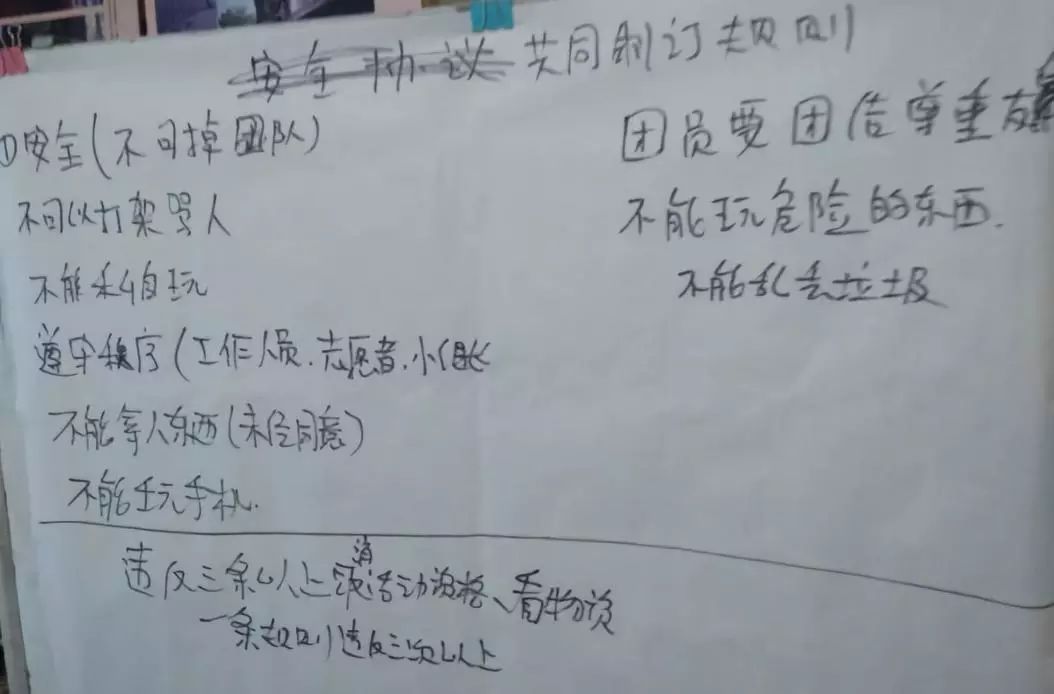 安全协议 共同制订规则
①安全(不可掉团队)
不可以打架骂人
不能私自玩
遵守秩序(工作人员.志愿者.小组长
不能拿人东西(未经同意)
不能玩手机.
团员要团结尊重友
不能玩危险的东西.
不能乱丢垃圾
违反三条以上取消活动资格、看物资
一条规则违反三次以上